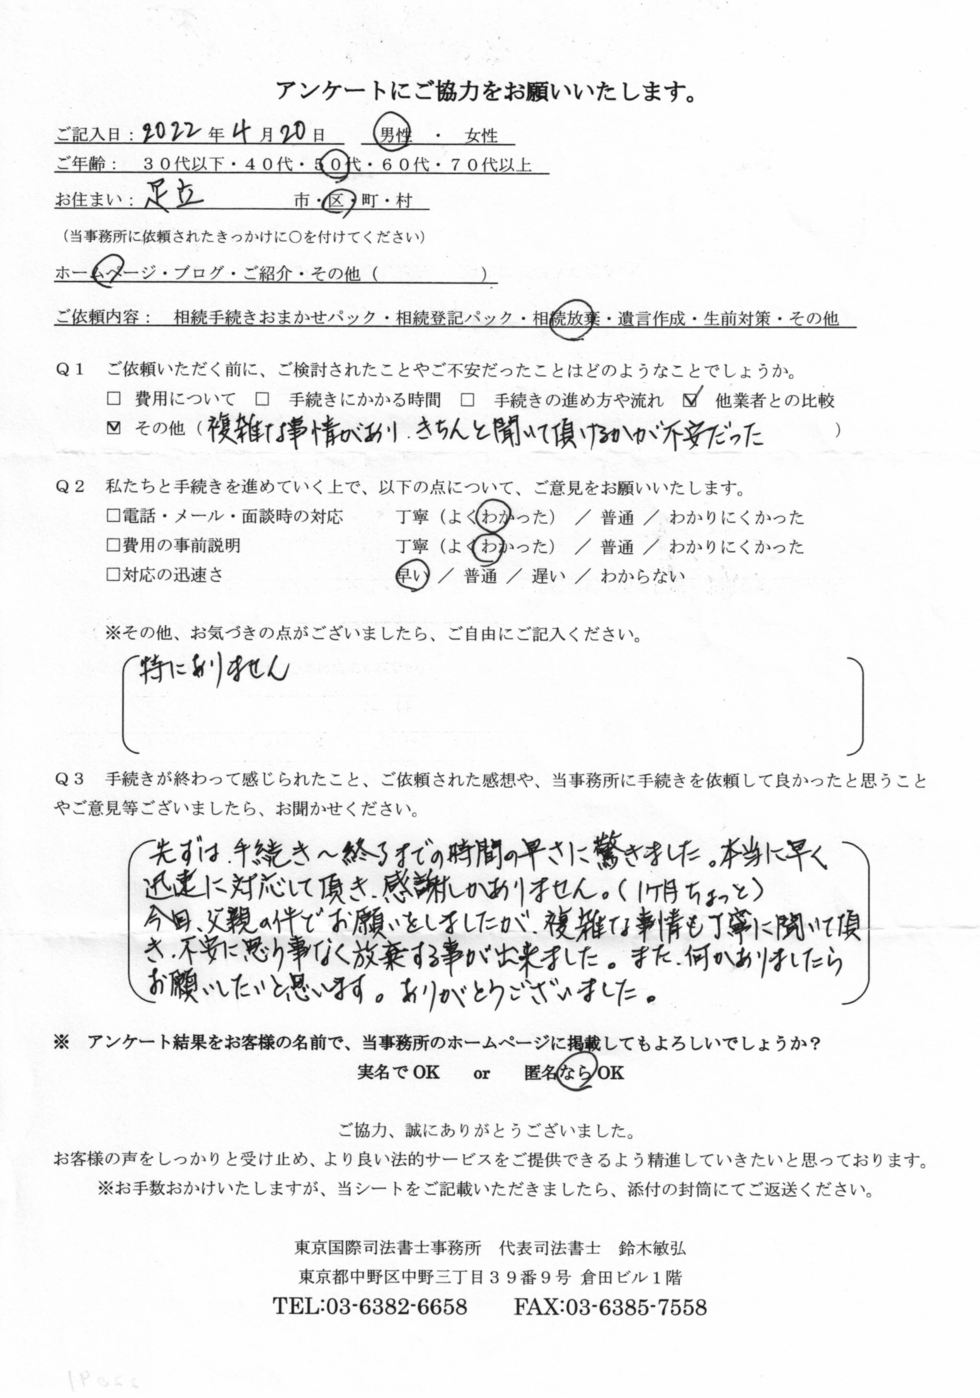 アンケートにご協力をお願いいたします。
ご記入日：2022年4月20日　男性 ・ 女性
ご年齢：　３０代以下・４０代・５０代・６０代・７０代以上
お住まい：足立　市・区・町・村
（当事務所に依頼されたきっかけに○を付けてください）
ホームページ・ブログ・ご紹介・その他（　　　　　　）
ご依頼内容：　相続手続きおまかせパック・相続登記パック・相続放棄・遺言作成・生前対策・その他
Ｑ１　ご依頼いただく前に、ご検討されたことやご不安だったことはどのようなことでしょうか。
□ 費用について　□　手続きにかかる時間　□　手続きの進め方や流れ　☑　他業者との比較
☑ その他（複雑な事情があり、きちんと聞いて頂けるかが不安だった　）
Ｑ２　私たちと手続きを進めていく上で、以下の点について、ご意見をお願いいたします。
□電話・メール・面談時の対応　丁寧（よくわかった）　／ 普通 ／ わかりにくかった
□費用の事前説明　丁寧（よくわかった）　／ 普通 ／ わかりにくかった
□対応の迅速さ　早い ／ 普通 ／ 遅い ／ わからない
※その他、お気づきの点がございましたら、ご自由にご記入ください。
特にありません
Ｑ３　手続きが終わって感じられたこと、ご依頼された感想や、当事務所に手続きを依頼して良かったと思うこと
やご意見等ございましたら、お聞かせください。
先ずは、手続き～終るまでの時間の早さに驚きました。本当に早く
迅速に対応して頂き、感謝しかありません。（1ヶ月ちょっと）
今回、父親の件でお願いをしましたが、複雑な事情も丁寧に聞いて頂
き、不安に思う事なく放棄する事が出来ました。また、何かありましたら
お願いしたいと思います。ありがとうございました。
※　アンケート結果をお客様の名前で、当事務所のホームページに掲載してもよろしいでしょうか？
実名でOK　or　匿名ならOK
ご協力、誠にありがとうございました。
お客様の声をしっかりと受け止め、より良い法的サービスをご提供できるよう精進していきたいと思っております。
※お手数おかけいたしますが、当シートをご記載いただきましたら、添付の封筒にてご返送ください。
東京国際司法書士事務所　代表司法書士　鈴木敏弘
東京都中野区中野三丁目３９番９号 倉田ビル１階
TEL:03-6382-6658　FAX:03-6385-7558